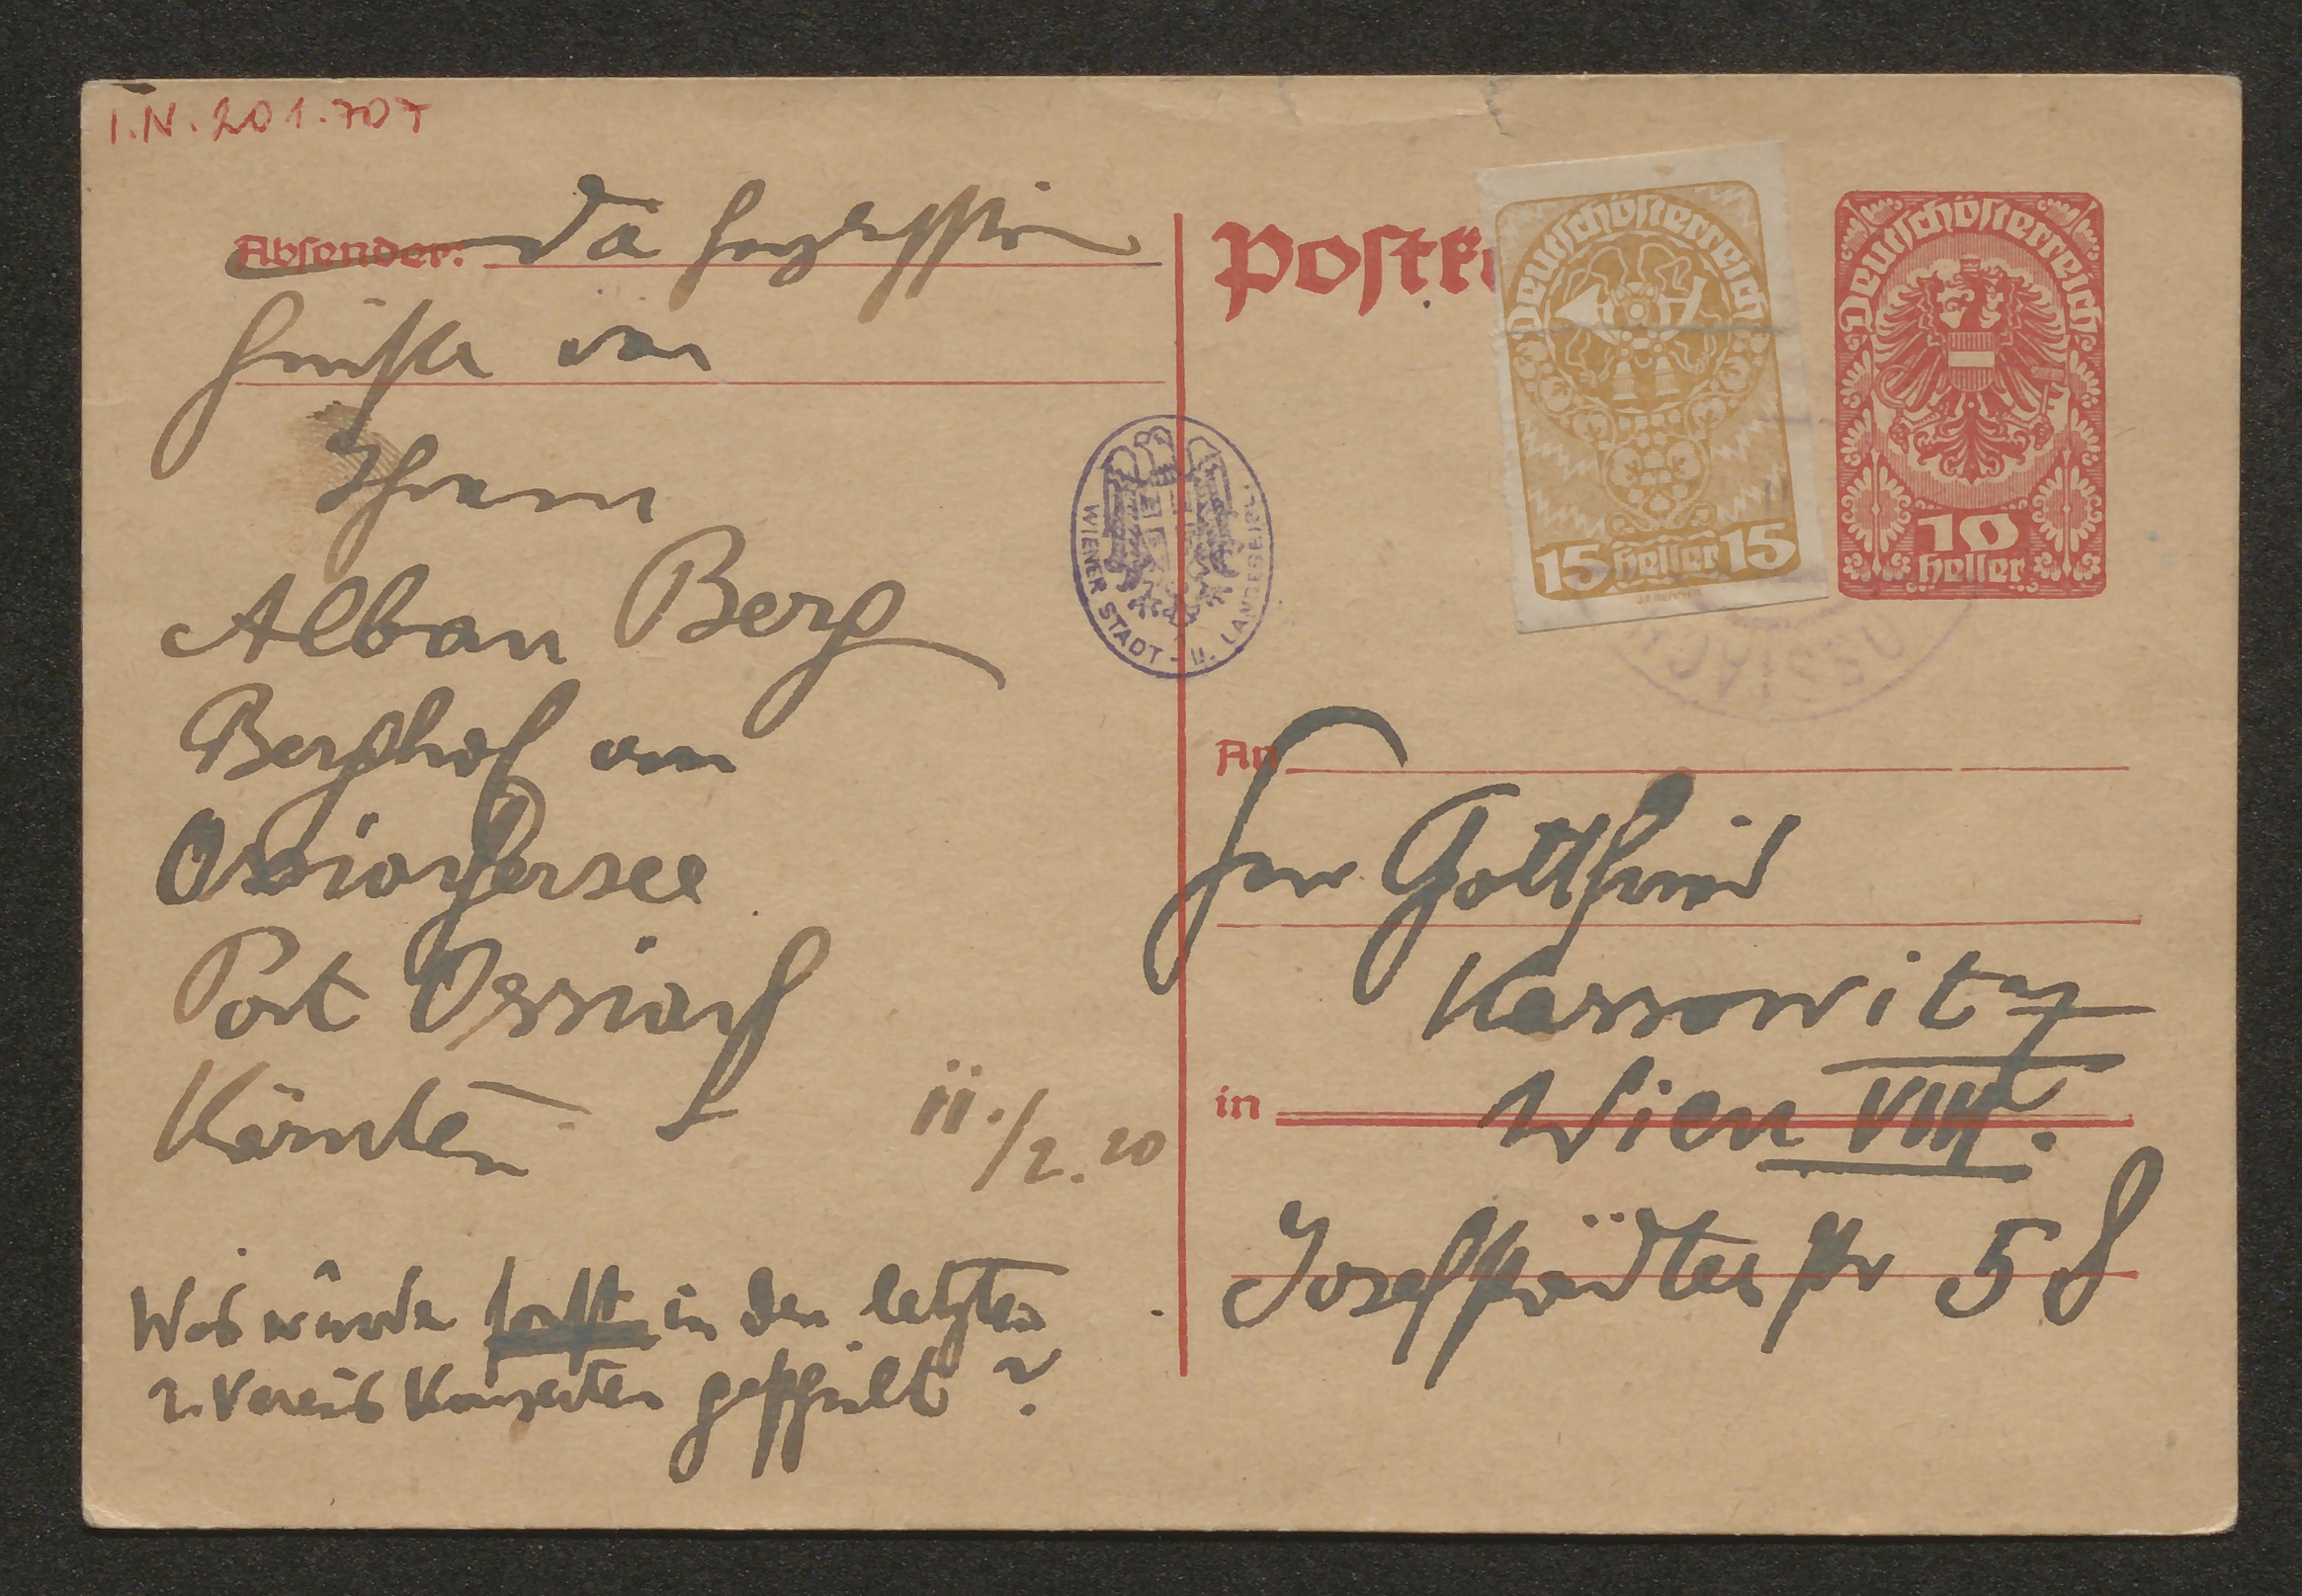 I.N. 201.707
Absender: Die herzlichsten
Grüße von
Ihrem
Alban Berg
Berghof am
Ossiachersee
Post Ossiach
Kärnten
11./2. 20
Was wurde sonst in den letzten
2 Vereins Konzerten gespielt?
WIENER STADT - U. LANDESBIBL.
Postk
Deutschösterreich
15 Heller 15
Deutschösterreich
10
Heller
OSSIACH
An
Herrn Gottfried
Kassowitz
in Wien VIII.
Josefstädterstr 58